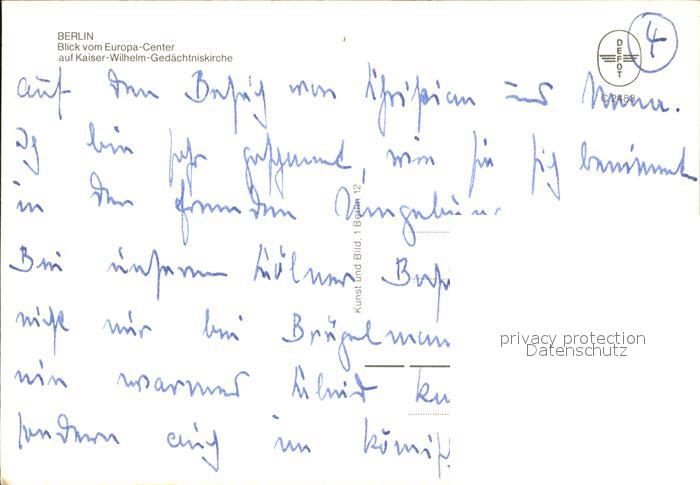 BERLIN
Blick vom Europa-Center
auf Kaiser-Wilhelm-Gedächtniskirche
4
DEFOT
auf den Besuch von Christian und
Ich bin sehr gespannt, wie sie sich benimmt
in der fremden Umgebung.
Bei unserem Kölner
nicht nur bei
ein warmes Kleid
sondern auch im
Kunst und Bild, 1 Berlin 12
privacy protection
Datenschutz